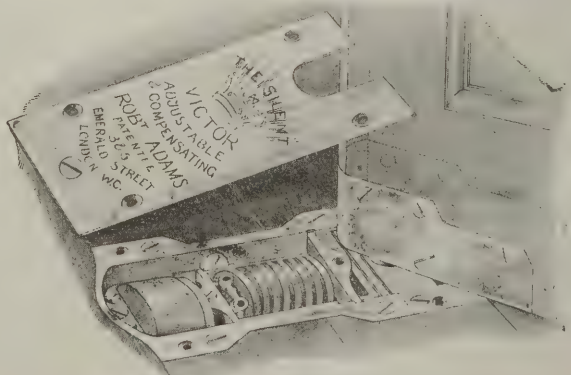 THE SILENT
VICTOR
ADJUSTABLE
& COMPENSATING
ROBT ADAMS
PATENTEE
3 & 5
EMERALD STREET
LONDON W.C.